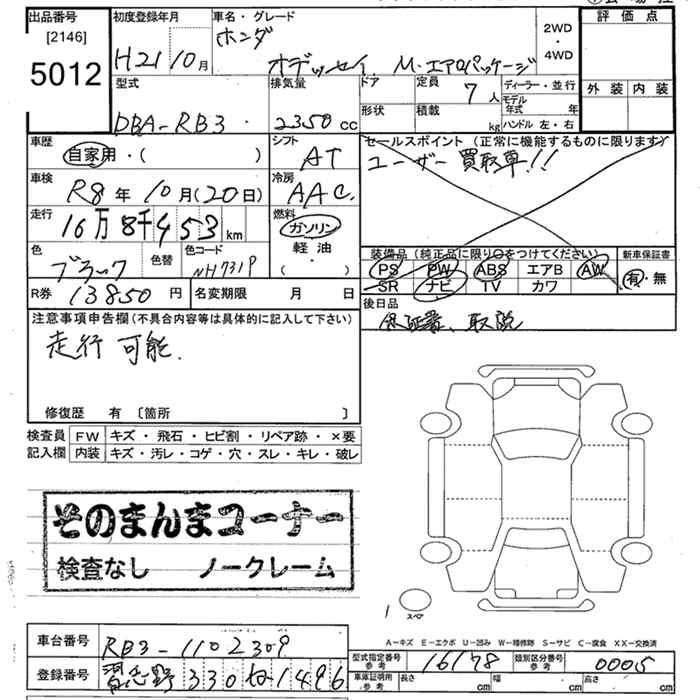 出品番号 初度登録年月 車名・グレード 評価点
[2146] ホンダ 2WD
5012 H21 10月 オデッセイ M・エアロパッケージ ・4WD
型式 排気量 ドア 定員 7人 ディーラー・並行 外装 内装
形状 積載 kg モデル年式 年
DBA-RB3 2350cc ハンドル 左・右
車歴 シフト セールスポイント (正常に機能するものに限ります)
自家用・( ) AT ユーザー買取車!!
車検 冷房
R8年10月(20日) AAC
走行 燃料
16万8千453km ガソリン
色 色替 色コード 軽油 装備品(純正品に限り○をつけてください) 新車保証書
ブラック NH731P ・( ) PS PW ABS エアB AW 有・無
SR ナビ TV カワ
R券 13850円 名変期限 月 日 後日品
注意事項申告欄(不具合内容等は具体的に記入して下さい) 保証書、取説
走行可能.
修復歴 有 〔箇所 〕
検査員 FW キズ・飛石・ヒビ割・リペア跡・×要
記入欄 内装 キズ・汚レ・コゲ・穴・スレ・キレ・破レ
そのまんまコーナー
検査なし ノークレーム
スペア
A-キズ E-エクボ U-凹み W-補修跡 S-サビ C-腐食 XX-交換済
車台番号 RB3-1102309
型式指定番号 参考 16178 類別区分番号 参考 0005
登録番号 習志野 330 1496
車庫証明用 参考 長さ cm 幅 cm 高さ cm